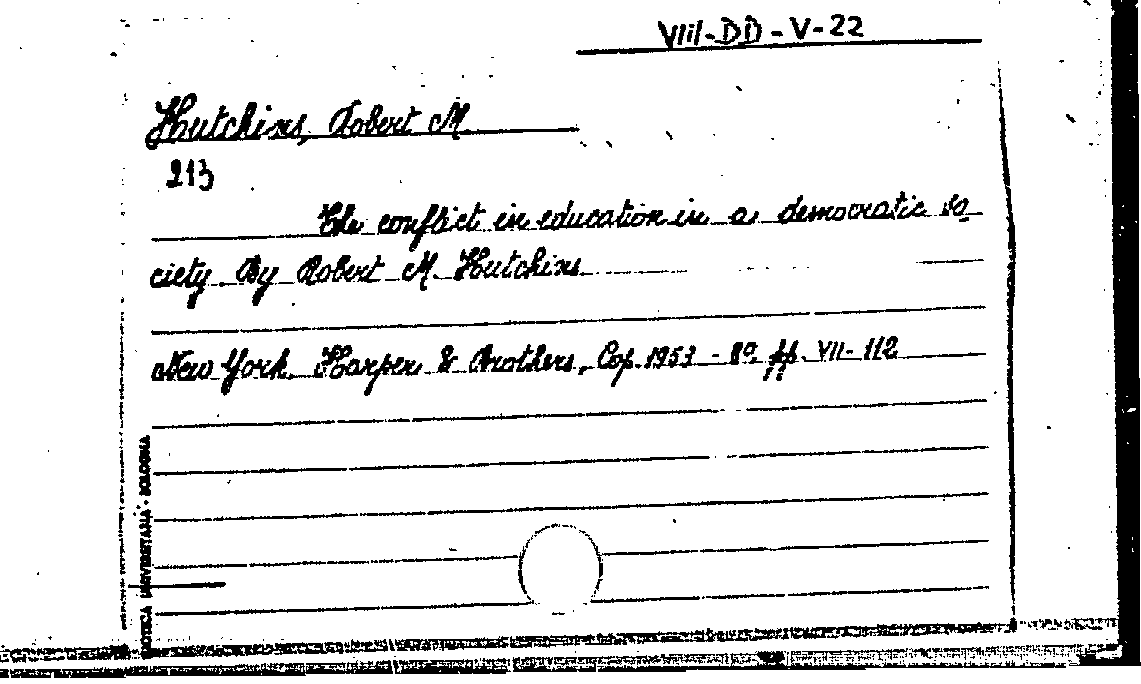 VIII-DD-V-22
Hutchins, Robert M.
213
The conflict in education in a democratic so
ciety. By Robert M. Hutchins
New York, Harper & Brothers, Cop. 1953 - 8°, pp. VII-112
UNIVERSITARIA - BOLOGNA